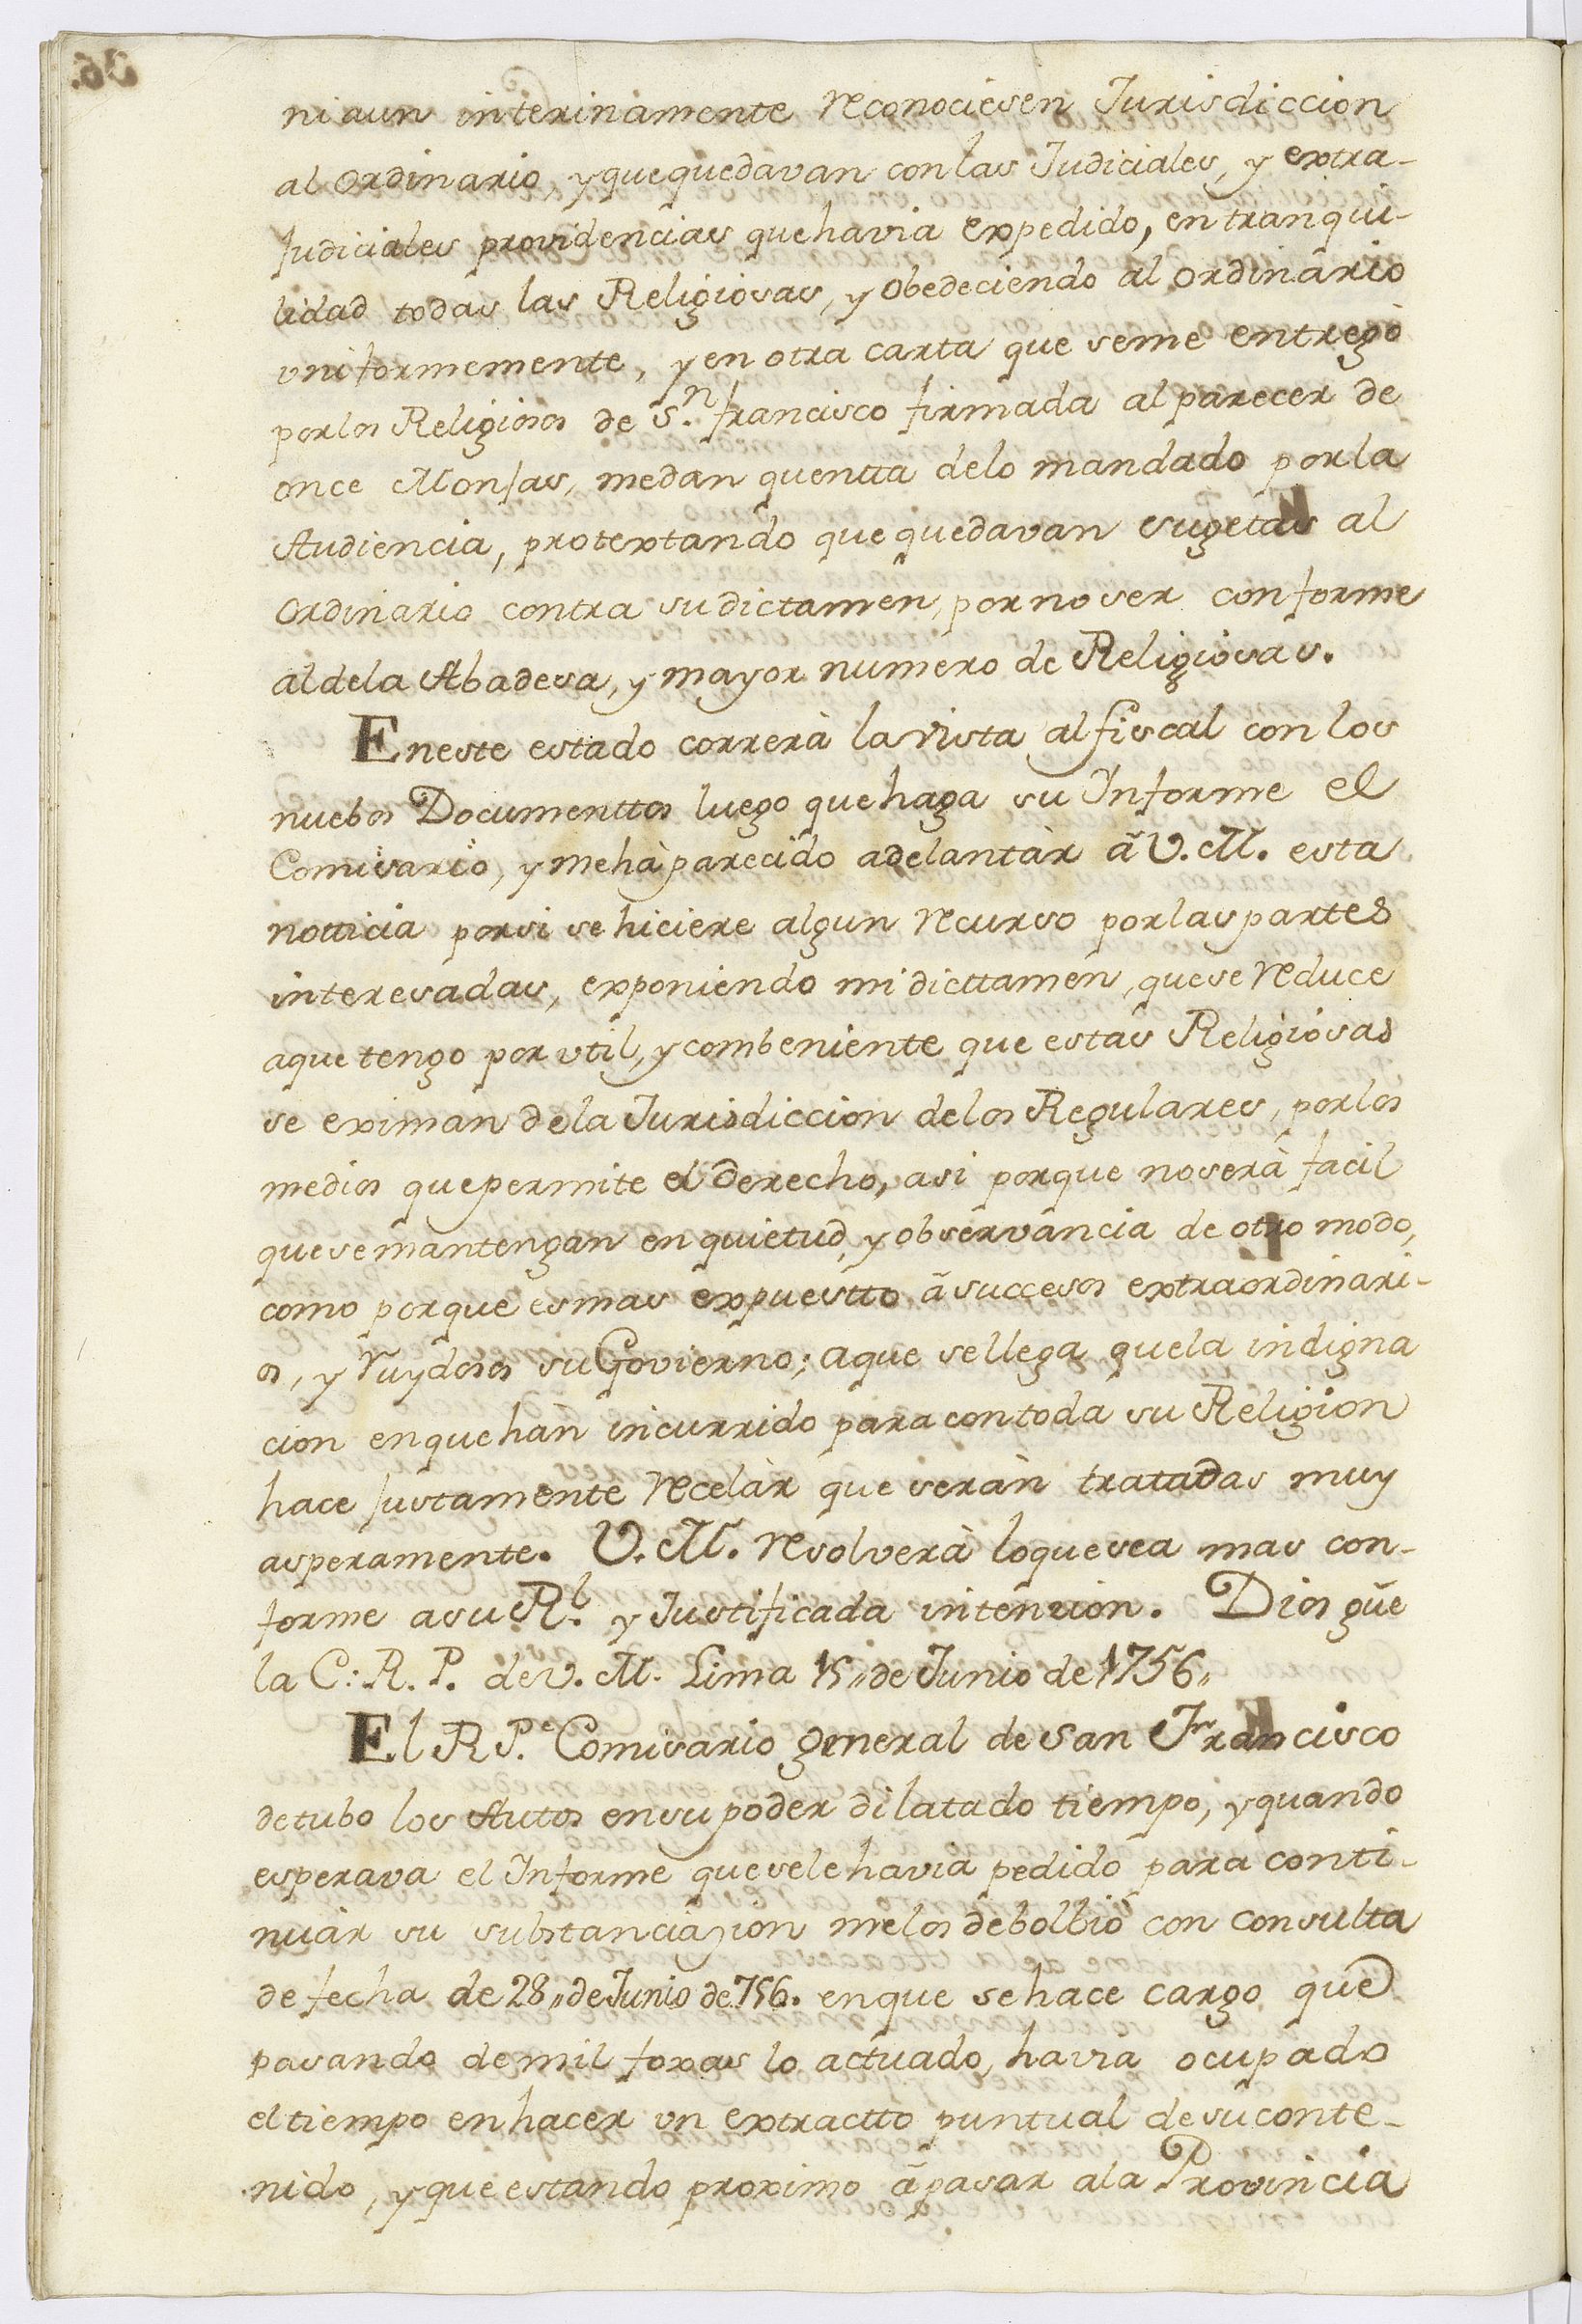 ni aun interinamente reconociesen Jurisdiccion
al ordinario, y que quedavan con las Judiciales, y extra-
judiciales providencias que havia expedido, en tranqui-
lidad todas las Religiosas, y obedeciendo al ordinario
vniformemente, y en otra carta que seme entregò
por los Religiosos de S.n francisco firmada al parecer de
once Monjas, medan quentta delo mandado por la
Audiencia, protextando que quedavan sugetas al
ordinario contra su dictamen, por no ser conforme
al dela Abadesa, y mayor numero de Religiosas.
En este estado correrà la vista al fiscal con los
nuebos Documenttos luego que haga su Informe el
Comisario, y mehà parecido adelantàr ã V. M. esta
notticia por si se hiciere algun recurso por las partes
interesadas, exponiendo mi dicttamen, que se reduce
aque tengo por vtil, y combeniente que estas Religiosas
se eximan de la Jurisdiccion delos Regulares, por los
medios que permite el derecho, asi porque no serà facil
que se mantengan en quietud, y observancia de otro modo,
como porque es mas expuestto ã succesos extraordinari-
os, y ruydosos su Govierno; aque se llega que la indigna
cion en que hàn incurrido para con toda su Religion
hace justamente recelàr que seràn tratadas muy
asperamente. V. M. resolverà loque sea mas con-
forme asu R.l y Justificada intencion. Dios gūe
la C: R. P. de v. M. Lima 15,, de Junio de 1756,,
El R P.e Comisario general de San Francisco
detubo los Autos en su poder dilatado tiempo, y quando
esperava el Informe que sele havia pedido para conti-
nuàr su substanciazion melos debolbiò con consulta
de fecha de 28,, de Junio de 756. en que se hace cargo que
pasando de mil foxas lo actuado, havia ocupado
el tiempo en hacer vn extractto puntual de su conte-
nido, y que estando proximo ã pasar ala Provincia